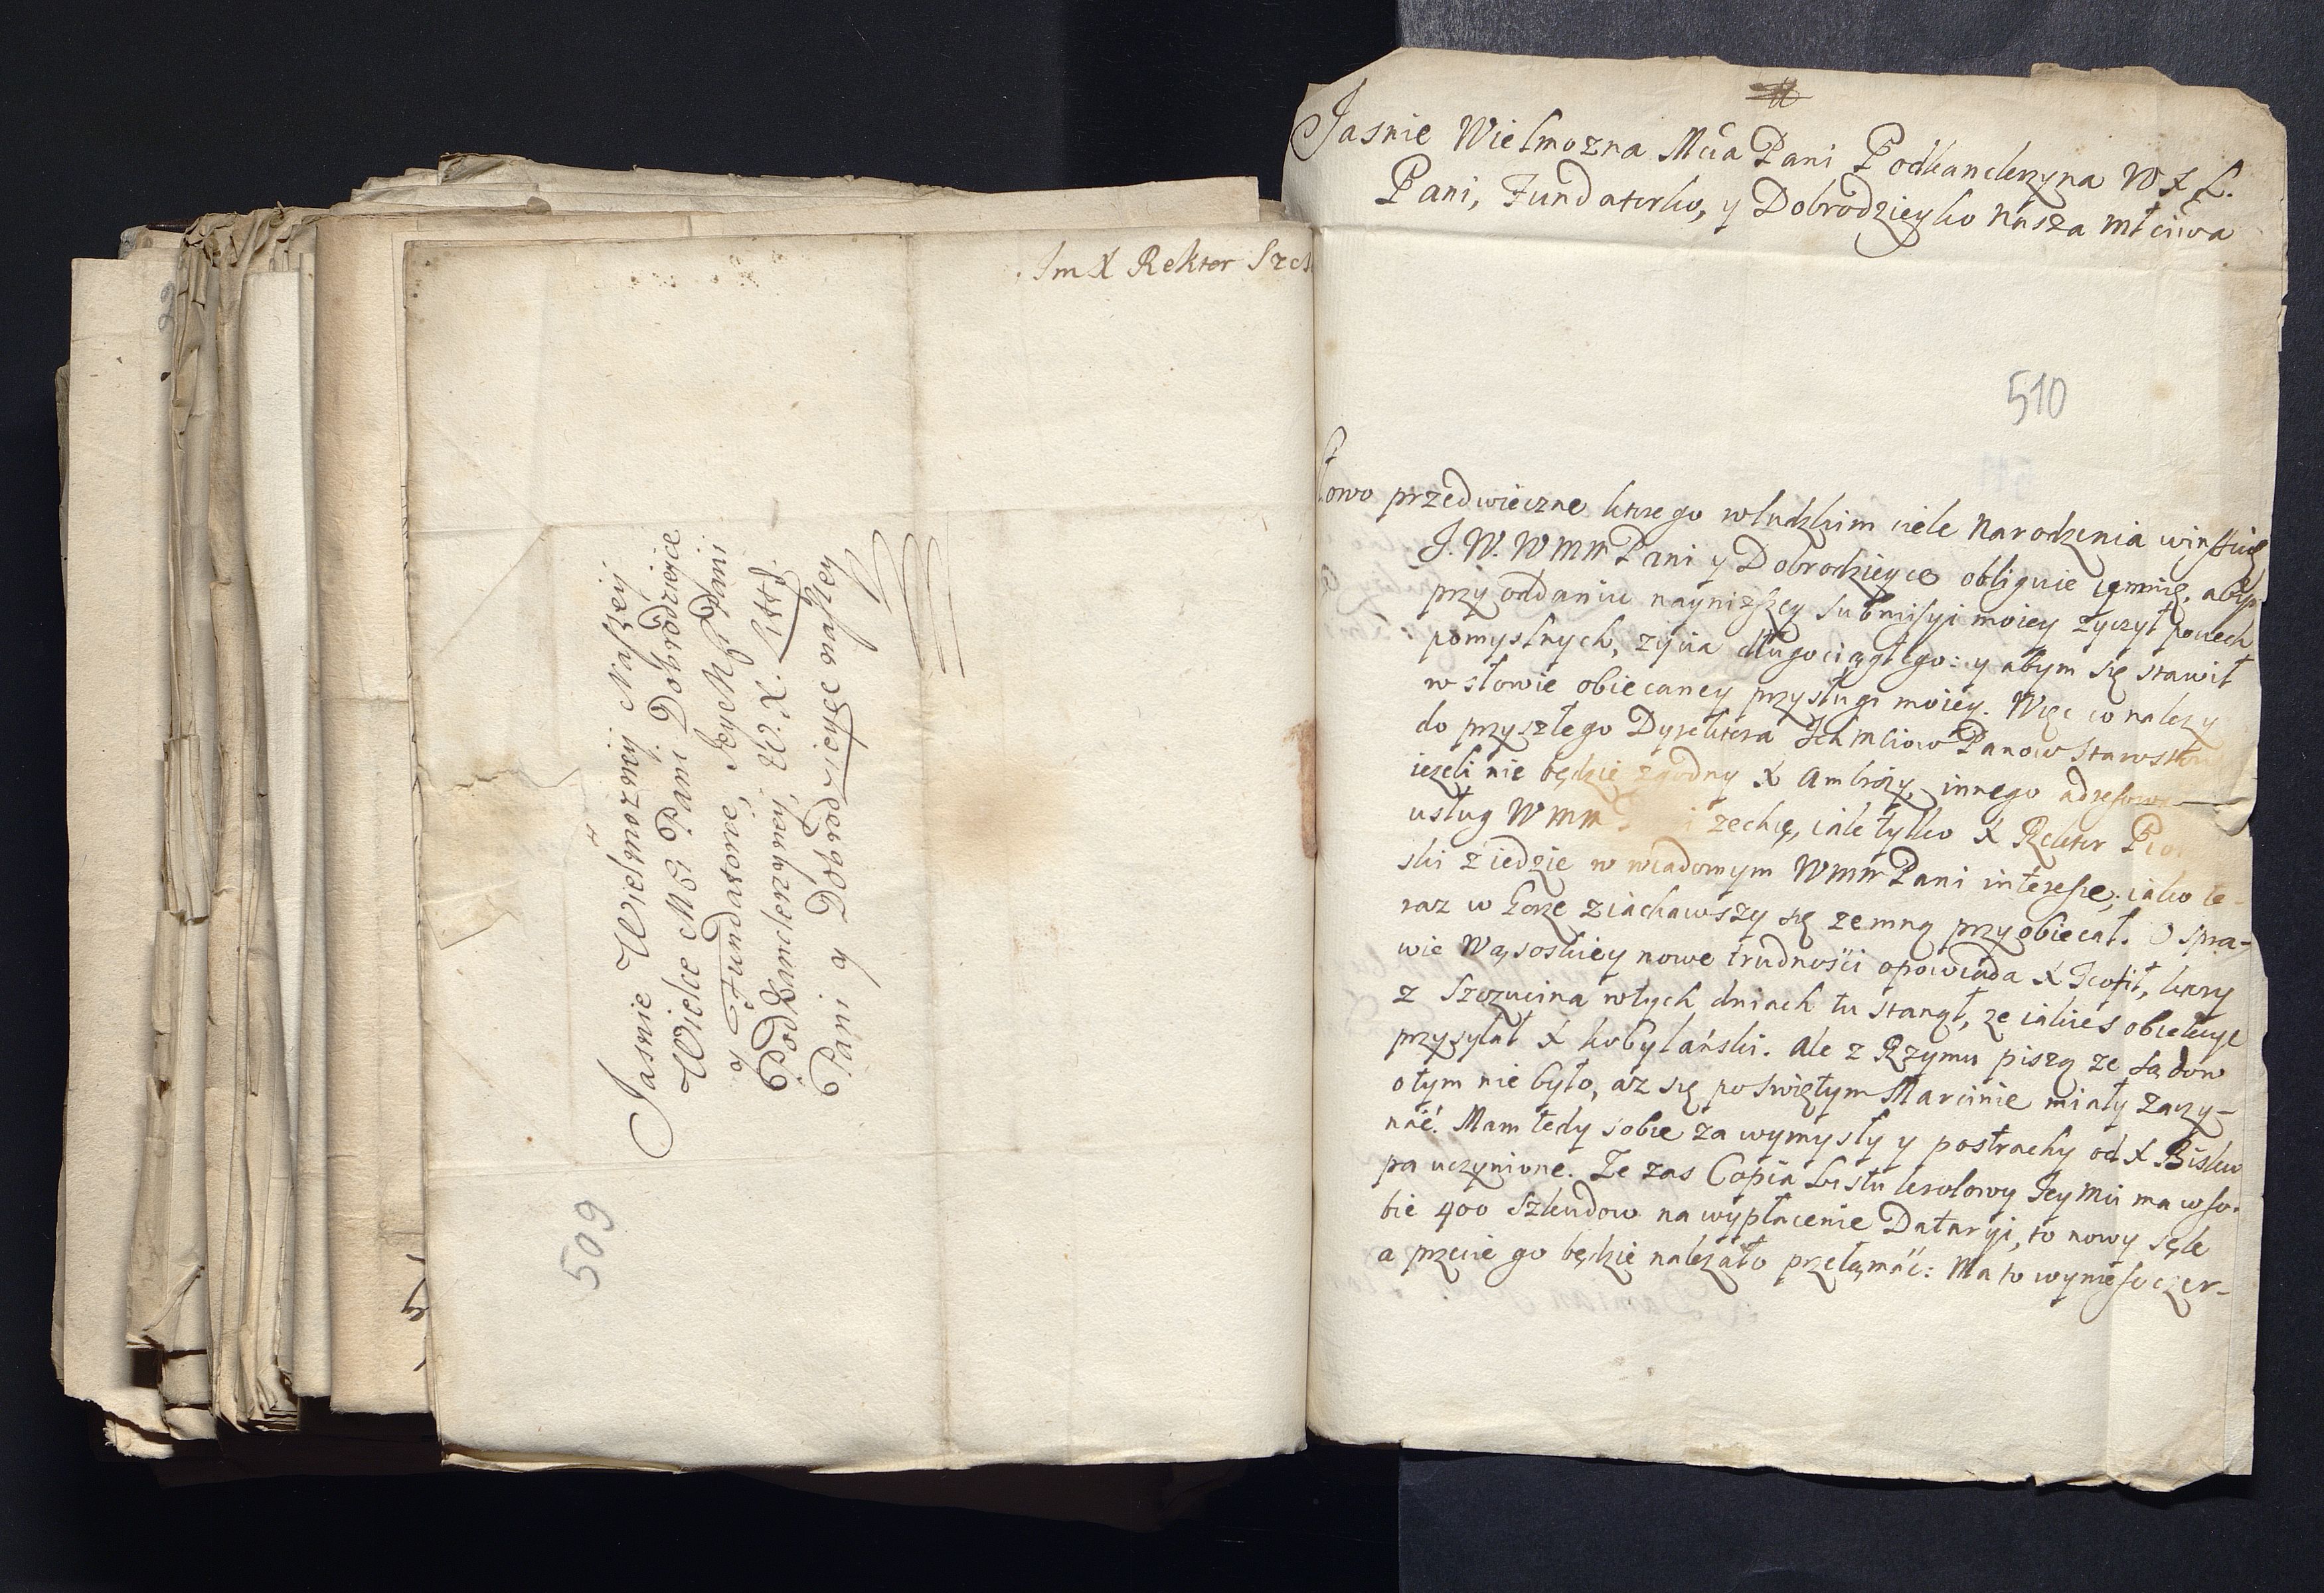 Im X Rektor
Jasnie Wielmozney Naszey
Wielce Mci Pani Dobrodziejce
y Fundatorce, Jey Mci Pani
PodKanclerzyney, W. X. Litt
Pani y Dobrodzieyce naszey
509
Jasnie Wielmozna Mcia Pani Podkanclerzyna W X L.
Pani, Fundatorko, y Dobrodzieyko nasza młciwa
510
łowo przedwieczne ktorego wludzkim ciele Narodzenia winszuię
J. W. WMM Pani y Dobrodzieyce obliguie mnię, abym
przy oddaniu nayniższey submisyi moiey życzył pociech
pomyslnych, życia długociągłego: y abym się stawił
w słowie obiecaney przysługi moiey. Więc co nalezy
do przyszłego Dyrektora Ich Mciow Panow
iezeli nie będzie zgodny X Ambroży, innego
usług WMM zechcę, iale tylko X Rektor
ski ziedzie w wiadomym WMM Pani interesie; iako te-
raz w Gorze ziachawszy się zemną przyobiecał. O spra-
wie Wąsoskiey nowe trudności opowiada X Teofil, ktory
z Szczucina wtych dniach tu stanął, ze iakies obiekcye
przysyłał X Kobylański. Ale z Rzymu piszą ze sądow
otym nie było, az się po swiętym Marcinie miały zaczy-
nać. Mam tedy sobie za wymysły y postrachy od X Bisku
pa uczynione. Ze zas Copia Listu krolowy Jey Mci ma wso-
bie 400 Szkudow na wypłacenie Dataryi, to nowy sęk
a przecie go będzie należało przełamać: Ma to wynieść czer-